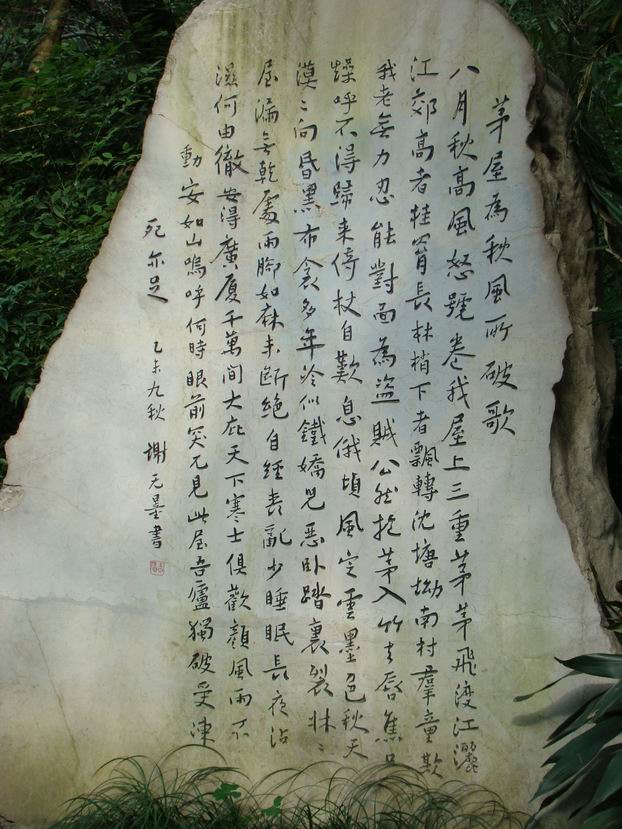 茅屋為秋風所破歌
八月秋高風怒號卷我屋上三重茅茅飛渡江灑
江郊高者挂罥長林梢下者飄轉沈塘坳南村羣童欺
我老無力忍能對面為盜賊公然抱茅入竹去唇焦口
燥呼不得歸来倚杖自歎息俄頃風定雲墨色秋天
漠〻向昏黑布衾多年冷似鐵嬌兒惡卧踏裏裂牀〻
屋漏無乾處雨腳如麻未斷絕自經喪亂少睡眠長夜沾
濕何由徹安得廣廈千萬間大庇天下寒士俱歡顏風雨不
動安如山嗚呼何時眼前突兀見此屋吾廬獨破受凍
死亦足 乙未九秋 謝无量書